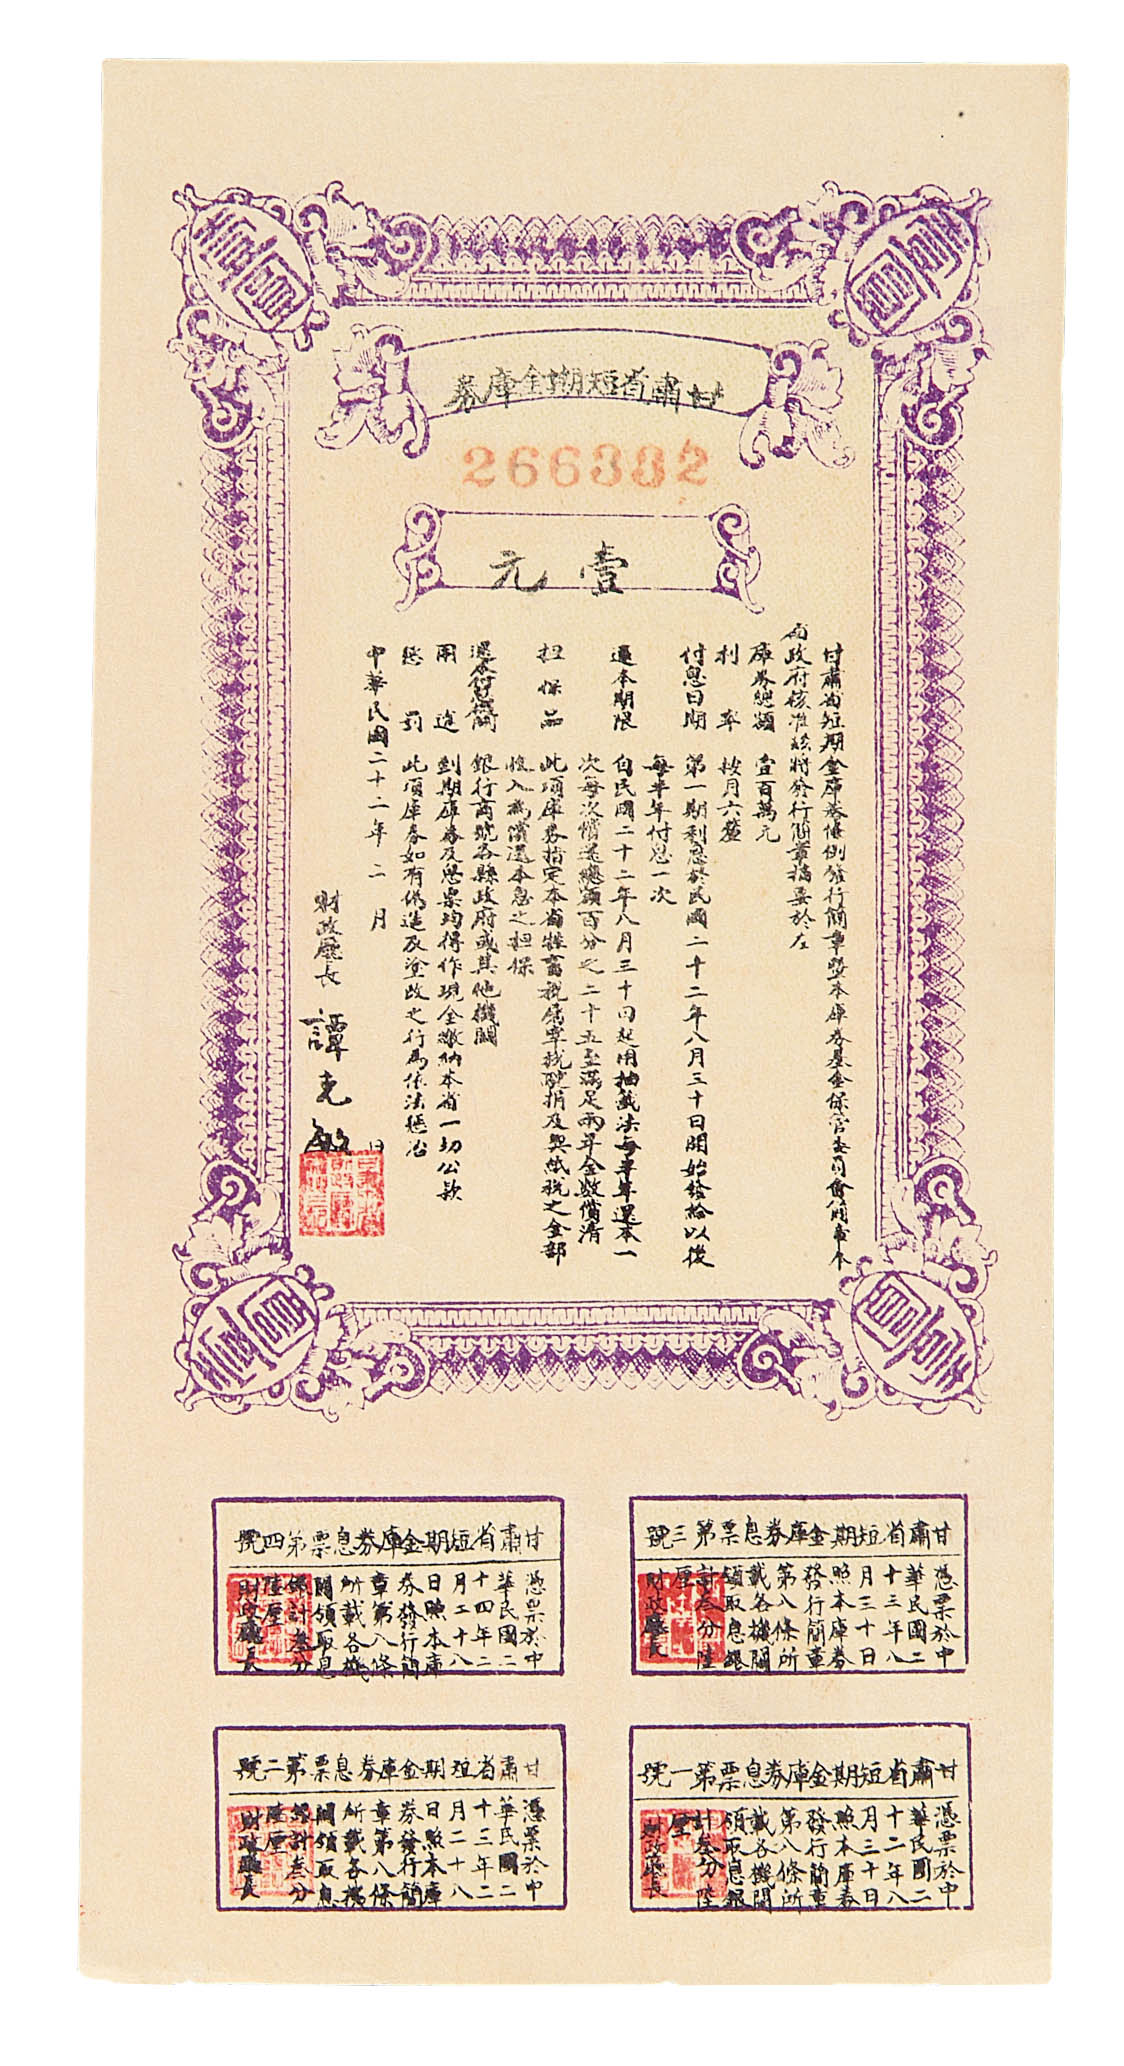 甘肅省短期金庫券
266332
壹元
甘肅省短期金庫券條例發行簡章暨本庫券基金保管委員會簡章本
省政府核准茲將發行簡章摘要於左
庫券總額 壹百萬元
利率 按月六釐
付息日期 第一期利息於民國二十二年八月三十日開始發給以後
每半年付息一次
還本期限 自民國二十二年八月三十日起用抽籤法每半年還本一
次每次償還總額百分之二十五至滿足兩年全數償清
担保品 此項庫券指定本省牲畜稅屠宰稅及契紙稅之全部
收入為償還本息之担保
還本付息機關 銀行商號各縣政府或其他機關
用途 到期庫券及息票均得作現金繳納本省一切公款
懲罰 此項庫券如有偽造及塗改之行為依法懲治
中華民國二十二年二月 日
財政廳長 譚克敏
甘肅省短期金庫券息票第三號
憑票於中
華民國二
十三年八
月三十日
照本庫券
發行簡章
第八條所
載各機關
領取息銀
計叁分陸
厘
財政廳長
甘肅省短期金庫券息票第四號
憑票於中
華民國二
十四年二
月二十八
日照本庫
券發行簡
章第八條
所載各機
關領取息
銀計叁分
陸厘
財政廳長
甘肅省短期金庫券息票第一號
憑票於中
華民國二
十二年八
月三十日
照本庫券
發行簡章
第八條所
載各機關
領取息銀
計叁分陸
厘
財政廳長
甘肅省短期金庫券息票第二號
憑票於中
華民國二
十三年二
月二十八
日照本庫
券發行簡
章第八條
所載各機
關領取息
銀計叁分
陸厘
財政廳長